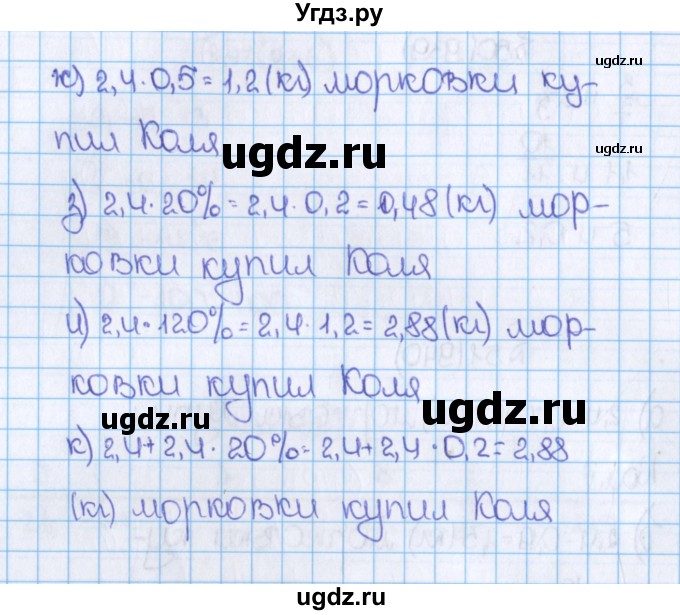 Угдз.ру
ugdz.ru
ж) 2,4 · 0,5 = 1,2 (кг) морковки ку-
пил Коля
ugdz.ru
з) 2,4 · 20% = 2,4 · 0,2 = 0,48 (кг) мор-
ковки купил Коля
ugdz.ru
и) 2,4 · 120% = 2,4 · 1,2 = 2,88 (кг) мор-
ковки купил Коля
ugdz.ru
ugdz.ru
к) 2,4 + 2,4 · 20% = 2,4 + 2,4 · 0,2 = 2,88
(кг) морковки купил Коля
ugdz.ru
ugdz.ru